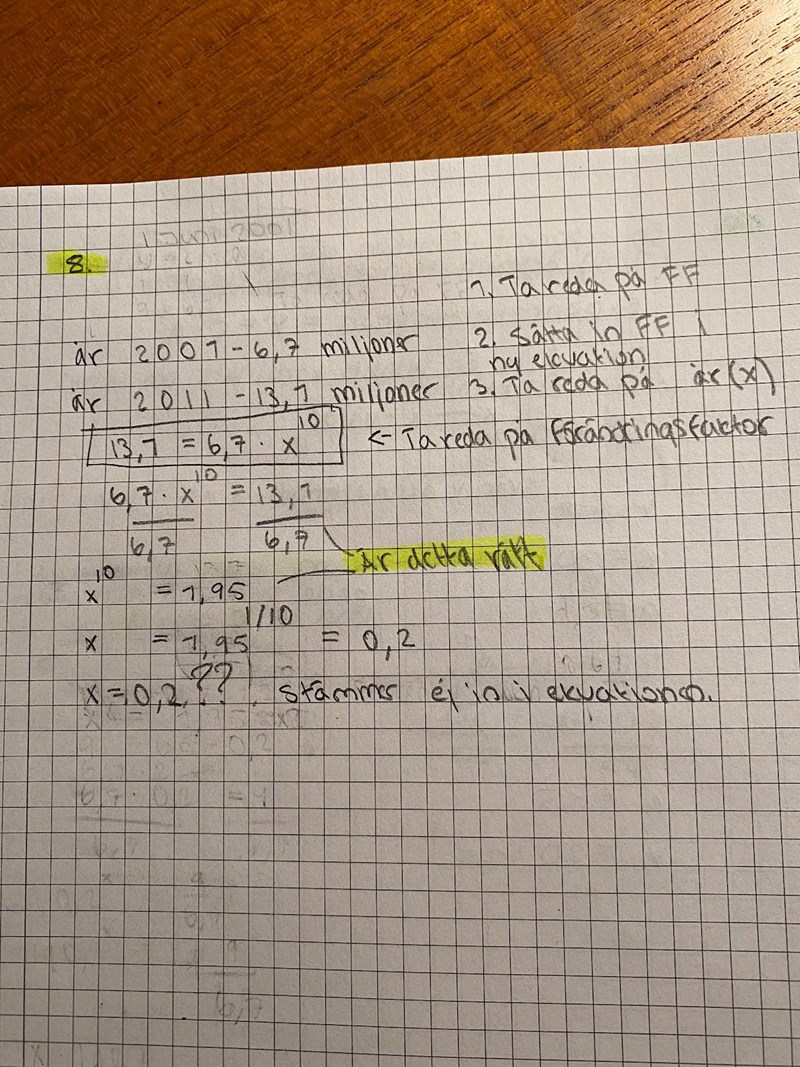 8.
1. Ta reda på FF
år 2001 - 6,7 miljoner
2. Sätta in FF i
ny ekvation
år 2011 - 13,1 miljoner
3. Ta reda på år(x)
13,1 = 6,7 · x^10
← Ta reda på Förändringsfactor
6,7 · x^10 = 13,1
6,7 6,7
Är detta rätt
x^10 = 1,95
x = 1,95^1/10 = 0,2
x = 0,2 ?? Stämmer ej in i ekvationen.